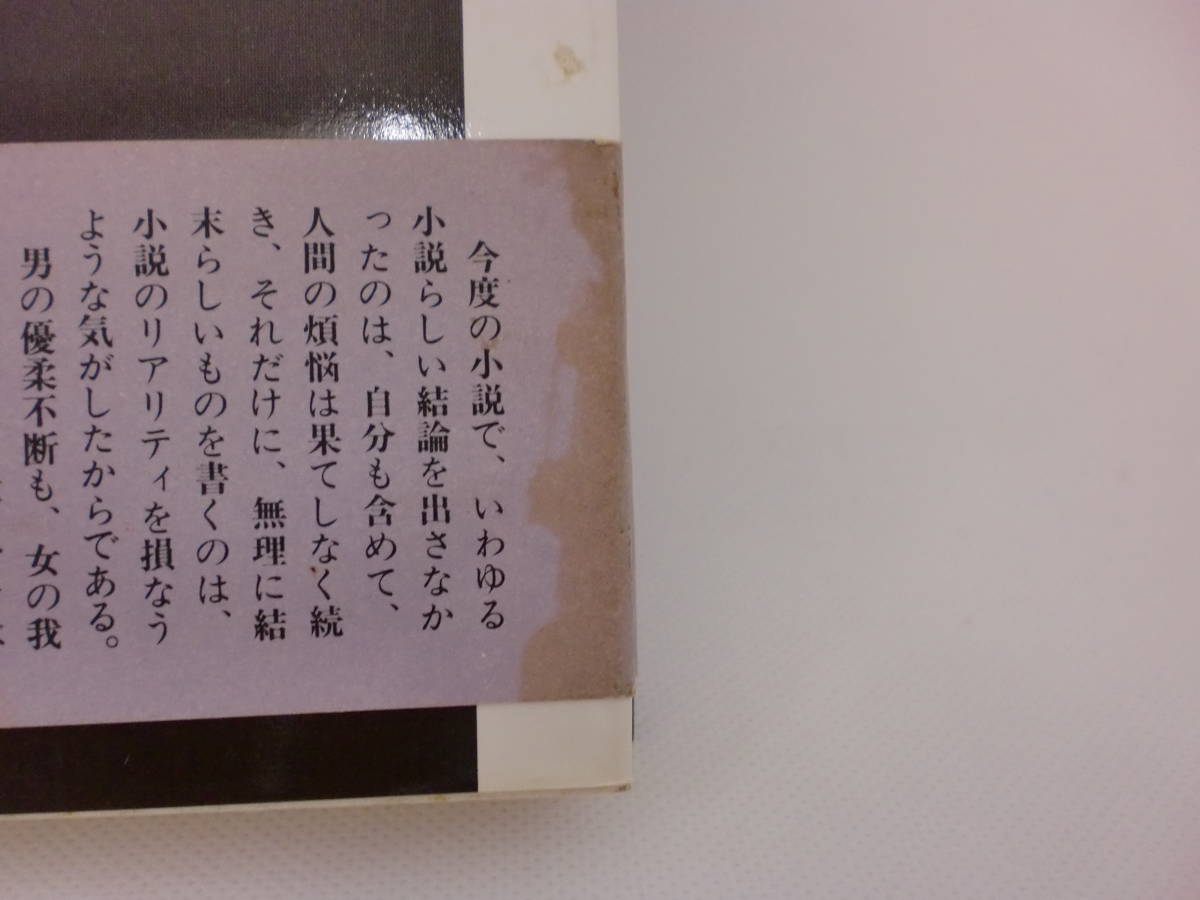 今度の小説で、いわゆる
小説らしい結論を出さなか
ったのは、自分も含めて、
人間の煩悩は果てしなく続
き、それだけに、無理に結
末らしいものを書くのは、
小説のリアリティを損なう
ような気がしたからである。
男の優柔不断も、女の我